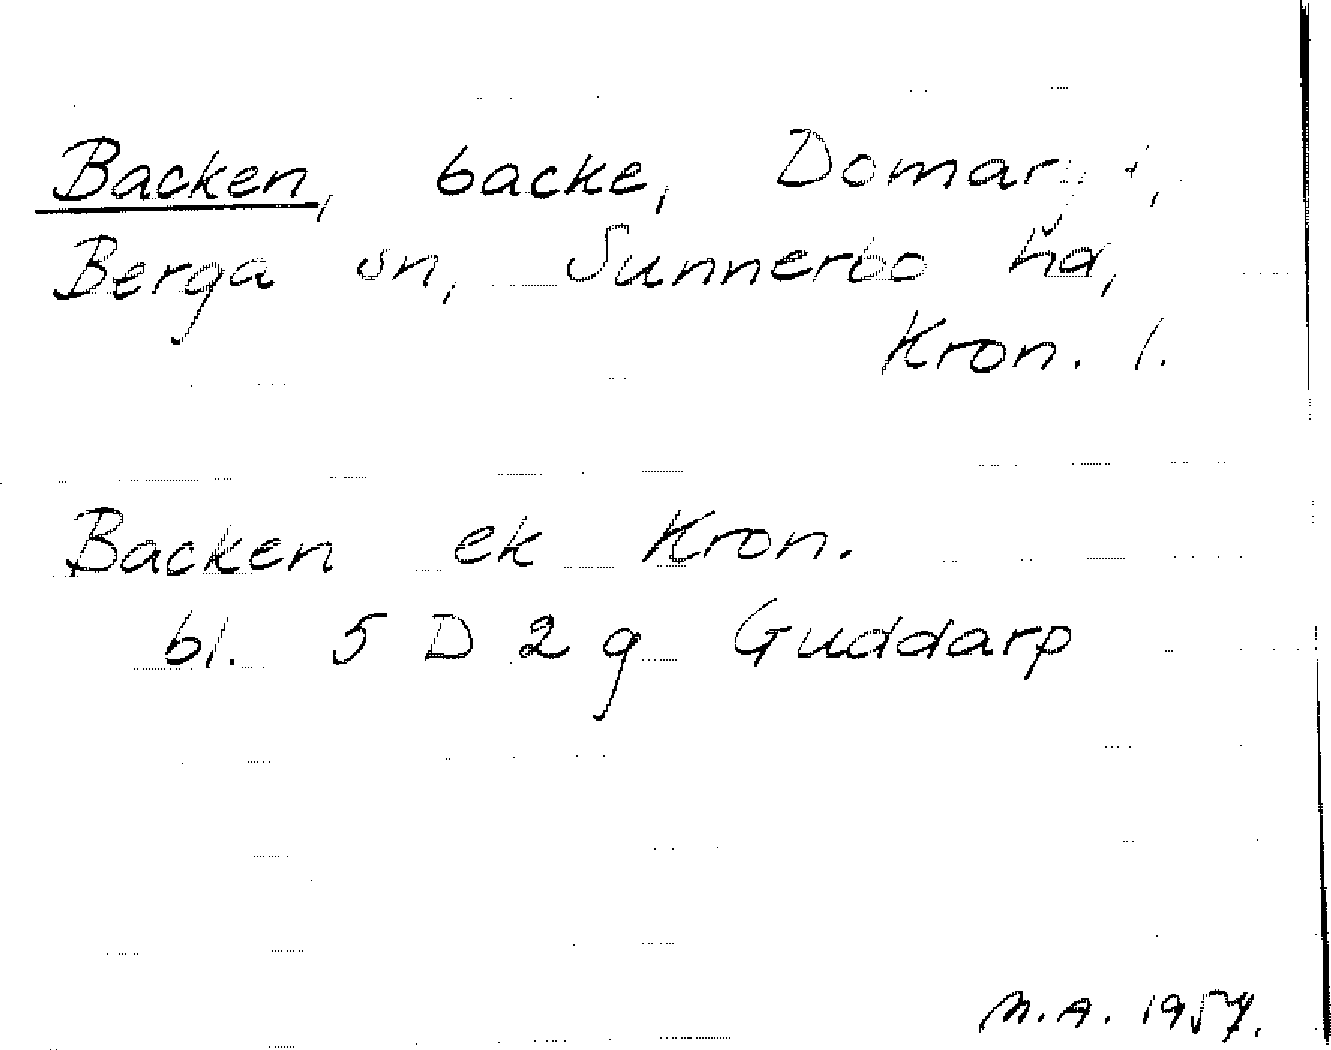 Backen, backe,
Berga sn, Sunnerbo hd,
Kron. l.
Backen ek Kron.
bl. 5 D 2 g Guddarp
M.A. 1957.